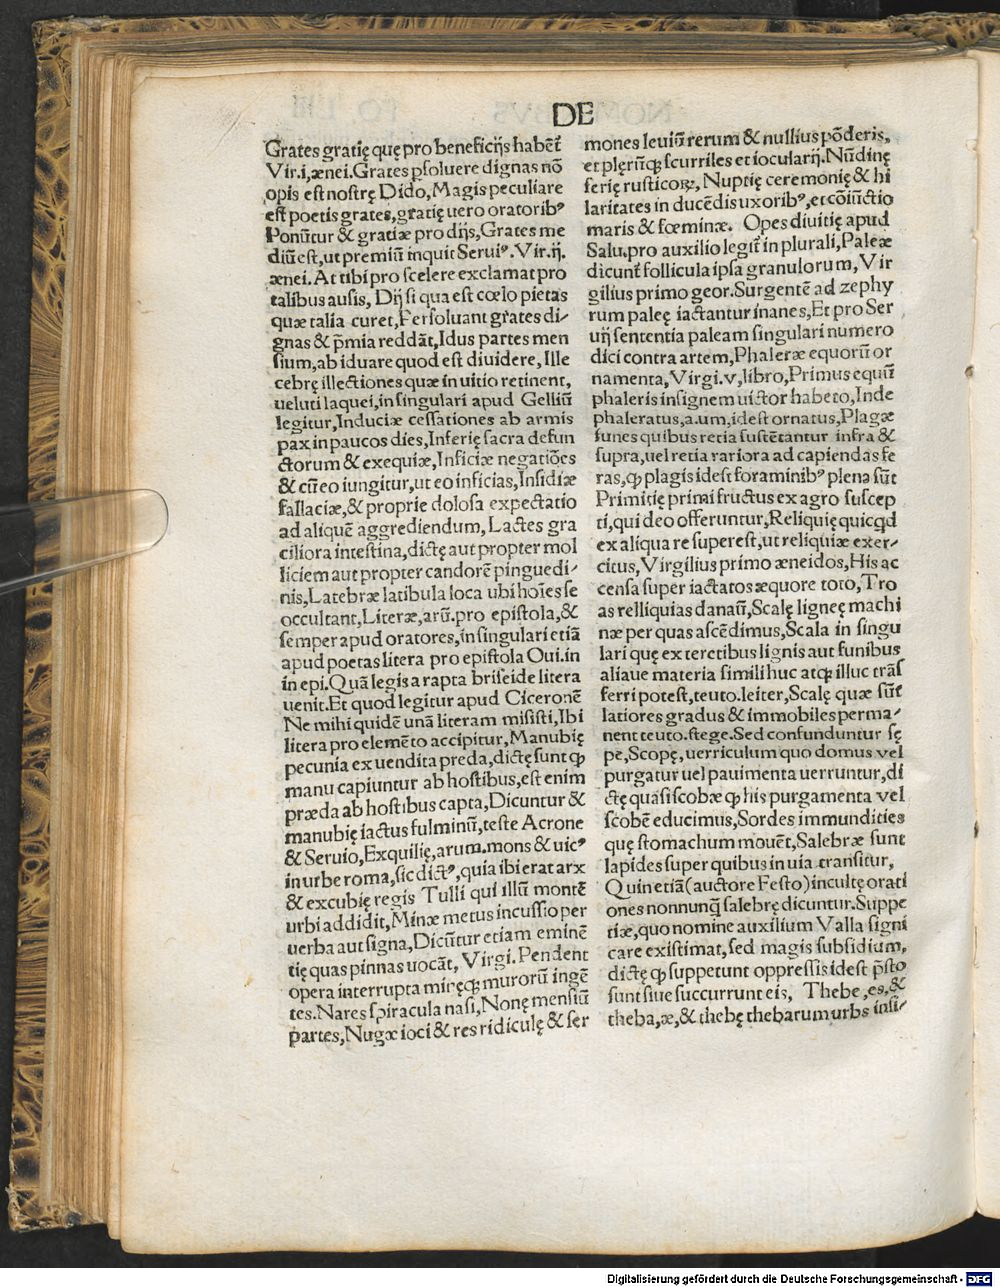 DE
Grates gratię quę pro beneficijs habẽt̃
Vir.i,ænei.Grates ꝑsoluere dignas nõ
opis est nostrę Dido, Magis peculiare
est poetis grates, gratię uero oratoribꝰ
Ponũtur & gratiæ pro dijs, Grates me
diũ est, ut premiũ inquit Seruiꝰ. Vir.ij.
ænei. At tibi pro scelere exclamat pro
talibus ausis, Dij si qua est cœlo pietas
quæ talia curet, Persoluant grates di⸗
gnas & p̃mia reddãt, Idus partes men
sium, ab iduare quod est diuidere, Ille
cebrę illectiones quæ in uitio retinent,
ueluti laquei, in singulari apud Gelliũ
legitur, Induciæ cessationes ab armis
pax in paucos dies, Inferię sacra defun
ctorum & exequiæ, Inficiæ negatiões
& cũ eo iungitur, ut eo inficias, Insidiæ
fallaciæ, & proprie dolosa expectatio
ad aliquẽ aggrediendum, Lactes gra
ciliora intestina, dictę aut propter mol
liciem aut propter candorẽ pinguedi⸗
nis, Latebræ latibula loca ubi hoĩes se
occultant, Literæ, arũ. pro epistola, &
semper apud oratores, in singulari etiã
apud poetas litera pro epistola Oui. in
in epi. Quã legis a rapta briseide litera
uenit. Et quod legitur apud Ciceronẽ
Ne mihi quidẽ unã literam misisti, Ibi
litera pro elemẽto accipitur, Manubię
pecunia ex uendita preda, dictę sunt ꝙ
manu capiuntur ab hostibus, est enim
præda ab hostibus capta, Dicuntur &
manubię iactus fulminũ, teste Acrone
& Seruio, Exquilię, arum. mons & uicꝰ
in urbe roma, sic dictꝰ, quia ibi erat arx
& excubię regis Tulli qui illũ montẽ
urbi addidit, Minæ metus incussio per
uerba aut signa, Dicũtur etiam eminẽ
tię quas pinnas uocãt, Virgi. Pendent
opera interrupta minęꝗ murorũ ingẽ
tes. Nares spiracula nasi, Nonę mensiũ
partes, Nugæ ioci & res ridiculę & ser
mones leuiũ rerum & nullius põderis,
et plęrũꝗ scurriles et iocularij. Nũdinę
ferię rusticoꝝ, Nuptię ceremonię & hi
laritates in ducẽdis uxoribꝰ, et cõiũctio
maris & fœminæ. Opes diuitię apud
Salu. pro auxilio legit̃ in plurali, Paleæ
dicunt̃ follicula ipsa granulorum, Vir
gilius primo geor. Surgentẽ ad zephy
rum paleę iactantur inanes, Et pro Ser
uij sententia paleam singulari numero
dici contra artem, Phaleræ equorũ or
namenta, Virgi. v, libro, Primus equũ
phaleris insignem uictor habeto, Inde
phaleratus, a. um, idest ornatus, Plagæ
funes quibus retia sustẽtantur infra &
supra, uel retia rariora ad capiendas fe
ras, ꝙ plagis idest foraminibꝰ plena sũt
Primitię primi fructus ex agro suscep
ti, qui deo offeruntur, Reliquię quicꝗd
ex aliqua re superest, ut reliquiæ exer⸗
citus, Virgilius primo æneidos, His ac
censa super iactatos æquore toto, Tro
as relliquias danaũ, Scalę ligneę machi
næ per quas ascẽdimus, Scala in singu
lari quę ex teretibus lignis aut funibus
aliaue materia simili huc atꝗ illuc trãs
ferri potest, teuto. leiter, Scalę quæ sũt
latiores gradus & immobiles perma⸗
nent teuto. stege. Sed confunduntur sę
pe, Scopę, uerriculum quo domus vel
purgatur uel pauimenta uerruntur, di
ctę quasi scobæ ꝙ his purgamenta vel
scobẽ educimus, Sordes immundities
quę stomachum mouẽt, Salebræ sunt
lapides super quibus in uia transitur,
Quinetiã (auctore Festo) incultę orati
ones nonnunꝗ̃ salebrę dicuntur. Suppe
tiæ, quo nomine auxilium Valla signi
care existimat, sed magis subsidium,
dictę ꝙ suppetunt oppressis idest p̃sto
sunt siue succurrunt eis, Thebe, es, &
theba, æ, & thebę thebarum urbs insi⸗
Digitalisierung gefördert durch die Deutsche Forschungsgemeinschaft - DFG